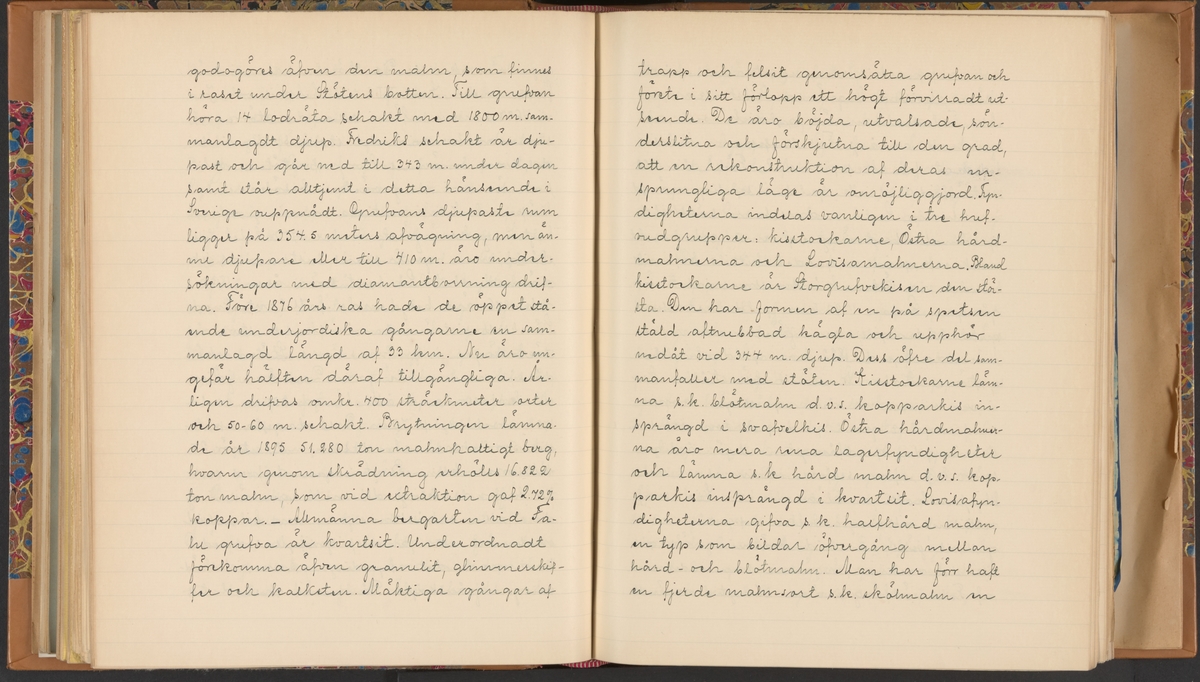 godogöres äfven den malm, som finnes
i raset under Stötens botten. Till grufvan
höra 14 lodräta schakt med 1800 m. sam-
manlagdt djup. Fredriks schakt är dju-
past och går ned till 343 m. under dagen
samt står alltjemt i detta hänseende i
Sverige ouppnådt. Grufvans djupaste rum
ligger på 354.5 meters afvägning, men än-
nu djupare eller till 410 m. äro under-
sökningar med diamantborrning drif-
na. Före 1876 års ras hade de öppet stå-
ende underjordiska gångarne en sam-
manlagd längd af 33 km. Nu äro un-
gefär hälften däraf tillgängliga. År-
ligen drifvas omkr. 400 sträckmeter orter
och 50-60 m. schakt. Brytningen lämna-
de år 1895 51.280 ton malmhaltigt berg,
hvarur genom skrädning erhölls 16.822
ton malm, som vid extraktion gaf 2.72%
koppar. — Allmänna bergarten vid Fa-
lu grufva är kvartsit. Underordnadt
förekomma äfven granulit, glimmerskif-
fer och kalksten. Mäktiga gångar af
trapp och felsit genomsätta grufvan och
förete i sitt förlopp ett högt förvirradt ut-
seende. De äro böjda, utvalsade, sön-
derslitna och förskjutna till den grad,
att en rekonstruktion af deras ur-
sprungliga läge är omöjliggjord. Fyn-
digheterna indelas vanligen i tre huf-
vudgrupper: kisstockarne, Östra hård-
malmerna och Lovisamalmerna. Bland
kisstockarne är Storgrufvekisen den stör-
sta. Den har formen af en på spetsen
ställd aftrubbad kägla och upphör
nedåt vid 344 m. djup. Dess öfre del sam-
manfaller med stöten. Kisstockarne läm-
na s.k. blötmalm d.v.s. kopparkis in-
sprängd i svafvelkis. Östra hårdmalmer-
na äro mera rena lagerfyndigheter
och lämna s.k hård malm d.v.s. kop-
parkis insprängd i kvartsit. Lovisafyn-
digheterna gifva s.k. halfhård malm,
en typ som bildar öfvergång mellan
hård- och blötmalm. Man har förr haft
en fjerde malmsort s.k. skölmalm en